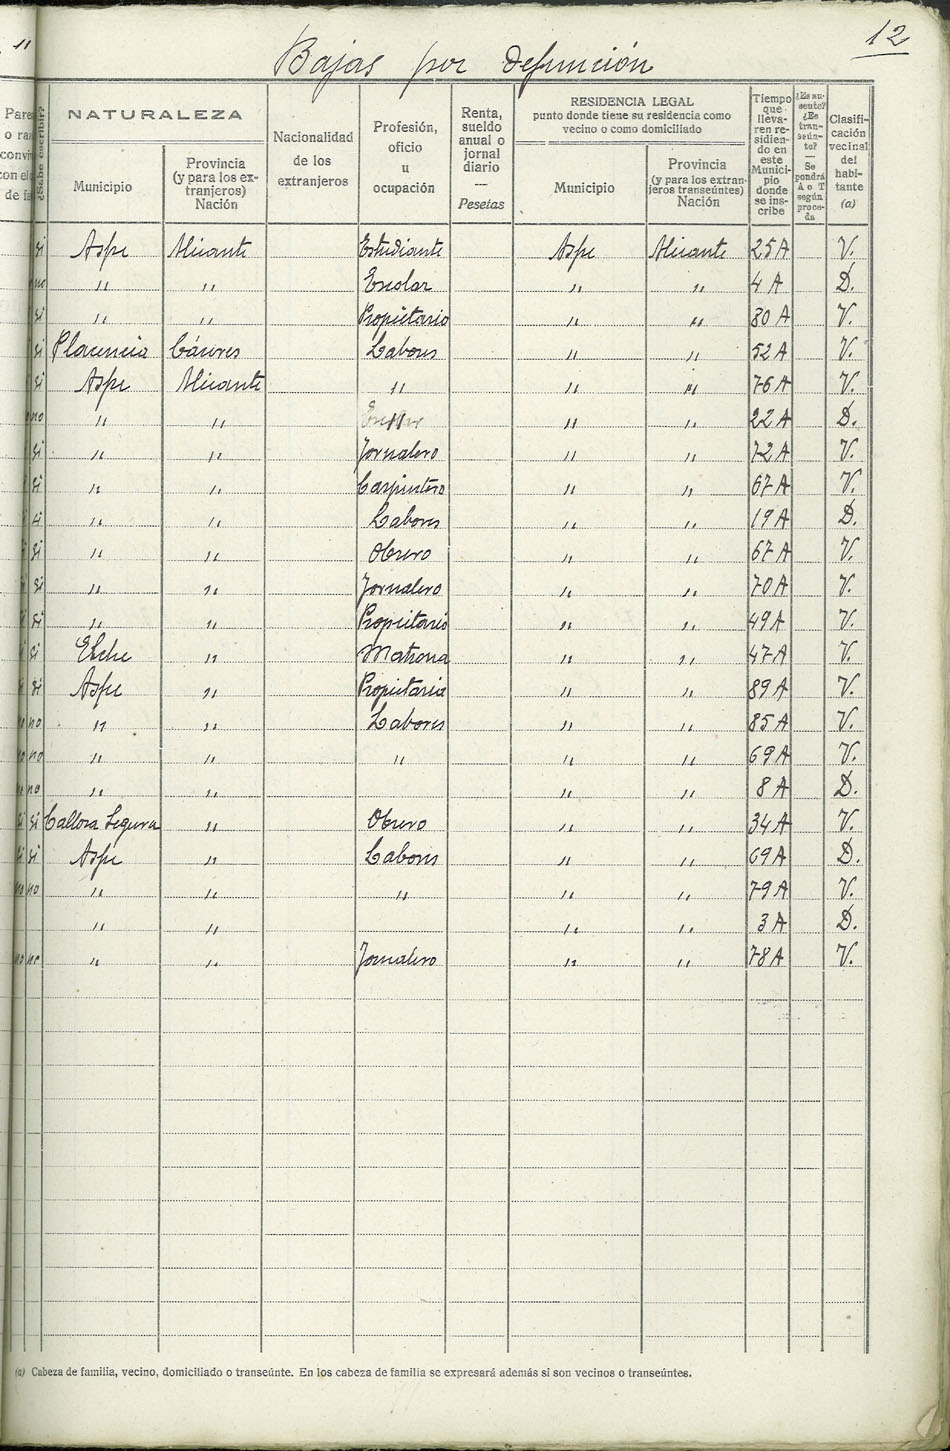 11
12
Bajas por defunción
¿Sabe escribir?
NATURALEZA
Municipio
Provincia
(y para los ex-
tranjeros)
Nación
Nacionalidad
de los
extranjeros
Profesión,
oficio
u
ocupación
Renta,
sueldo
anual o
jornal
diario
—
Pesetas
RESIDENCIA LEGAL
punto donde tiene su residencia como
vecino o como domiciliado
Municipio
Provincia
(y para los extran-
jeros transeúntes)
Nación
Tiempo
que
lleva-
ren re-
sidien-
do en
este
Munici-
pio
donde
se ins-
cribe
¿Es au-
sente?
¿Es
tran-
seún-
te?
—
Se
pondrá
A o T
según
proce-
da
Clasifi-
cación
vecinal
del
habi-
tante
(a)
si Aspe Alicante Estudiante Aspe Alicante 25 A V.
no " " Escolar " " 4 A D.
si " " Propietario " " 80 A V.
si Placencia Cáceres Labores " " 52 A V.
si Aspe Alicante " " " 76 A V.
no " " " " 22 A D.
si " " Jornalero " " 72 A V.
si " " Carpintero " " 67 A V.
si " " Labores " " 19 A D.
si " " Obrero " " 67 A V.
si " " Jornalero " " 70 A V.
si " " Propietario " " 49 A V.
si Elche " Matrona " " 47 A V.
si Aspe " Propietaria " " 89 A V.
no no " " Labores " " 85 A V.
no no " " " " " 69 A V.
no no " " " " 8 A D.
si si Callosa Segura " Obrero " " 34 A V.
si si Aspe " Labores " " 69 A D.
no no " " " " " 79 A V.
" " " " 3 A D.
no no " " Jornalero " " 78 A V.
(a) Cabeza de familia, vecino, domiciliado o transeúnte. En los cabeza de familia se expresará además si son vecinos o transeúntes.